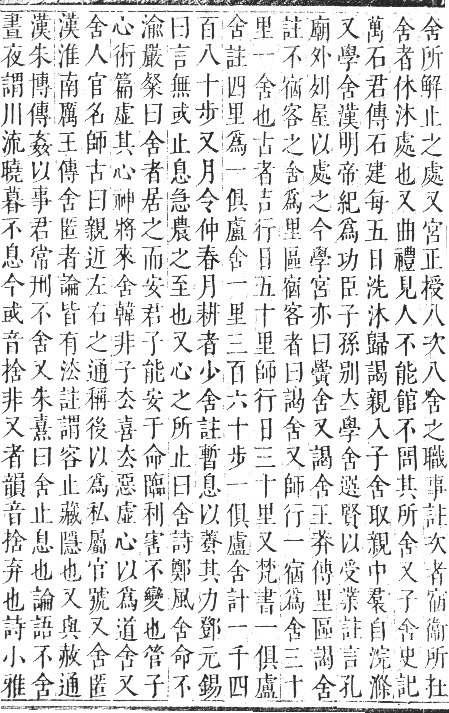 舍所解止之處又宮正授八次八舍之職事註次者宿衛所在
舍者休沐處也又曲禮見人不能館不問其所舍又子舍史記
萬石君傳石建每五日洗沐歸謁親入子舍取親中裠自浣滌
又學舍漢明帝紀爲功臣子孫別立學舍選賢以受業註言孔
廟外别屋以處之今學宮亦曰黌舍又謁舍王莽傳里區謁舍
註不宿客之舍爲里區宿客者曰謁舍又師行一宿爲舍三十
里一舍也古者吉行日五十里師行日三十里又梵書一俱盧
舍註四里爲一俱盧舍一里三百六十步一俱盧舍計一千四
百八十步又月令仲春月耕者少舍註暫息以蓄其力鄧元錫
曰言無或止息急農之至也又心之所止曰舍詩鄭風舍命不
渝嚴粲曰舍者居之而安君子能安于命臨利害不變也管子
心術篇虛其心神將來舍韓非子去喜去惡虛心以爲道舍又
舍人官名師古曰親近左右之通稱後以爲私屬官號又舍匿
漢淮南厲王傳舍匿者論皆有法註謂容止藏隱也又與赦通
漢朱博傳姦以事君常刑不舍又朱熹曰舍止息也論語不舍
晝夜謂川流曉暮不息今或音捨非又者韻音捨弃也詩小雅